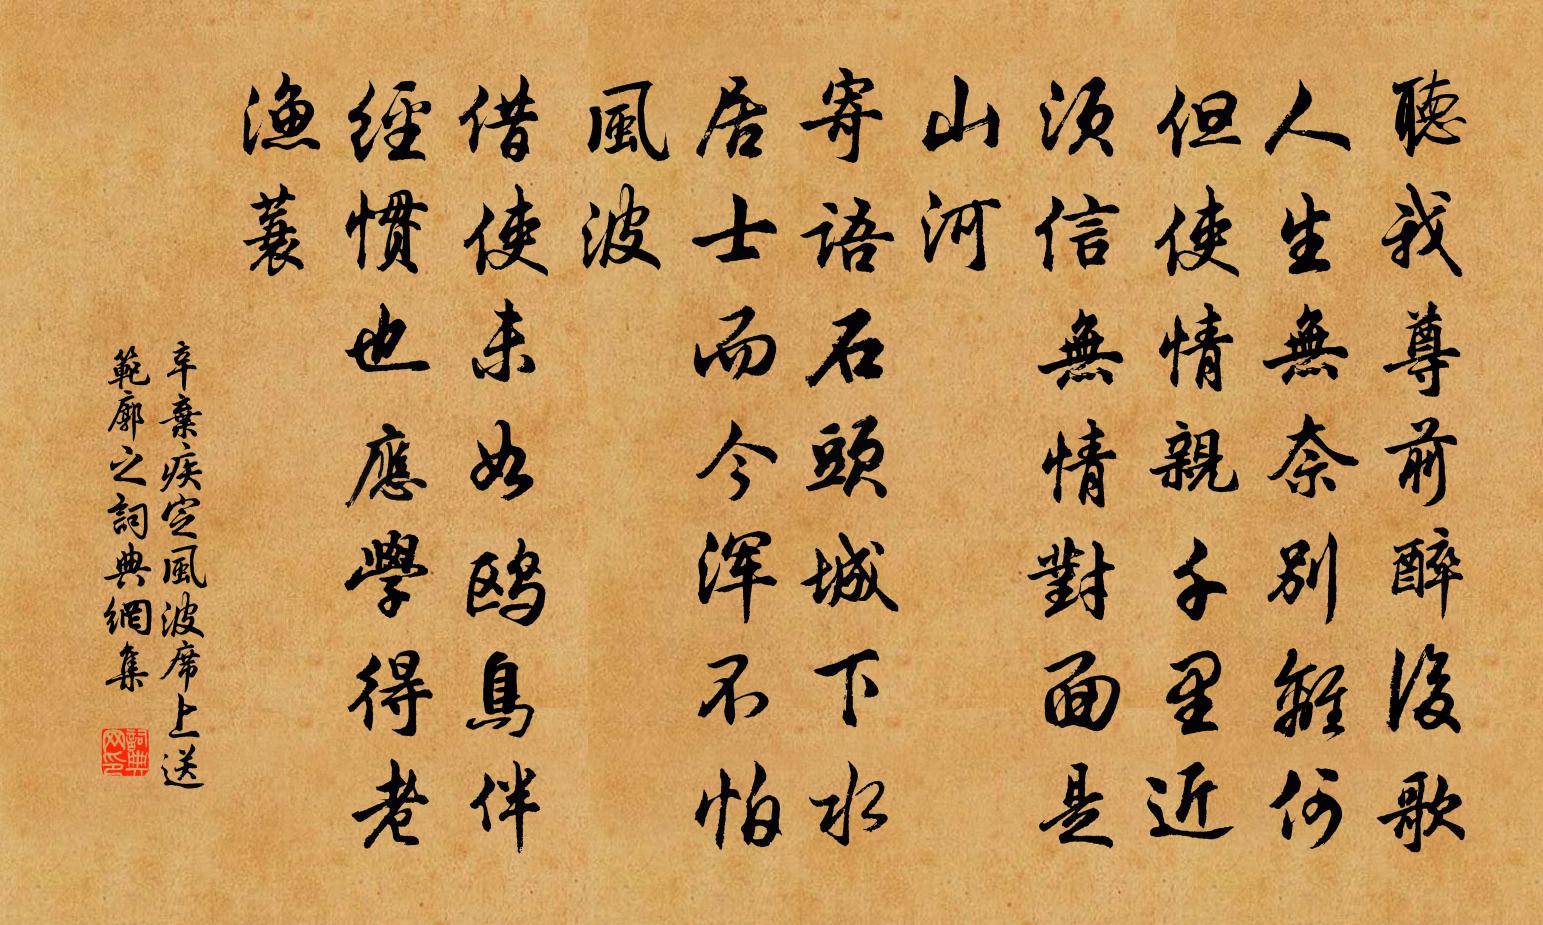 聽我尊前醉後歌
人生無奈別離何
但使情親千里近
須信無情對面是
山河
寄語石頭城下水
居士而今渾不怕
風波
借使未如鷗鳥伴
經慣也應學得老
漁蓑
辛棄疾定風波席上送
範廓之詞典網集
詞典網印